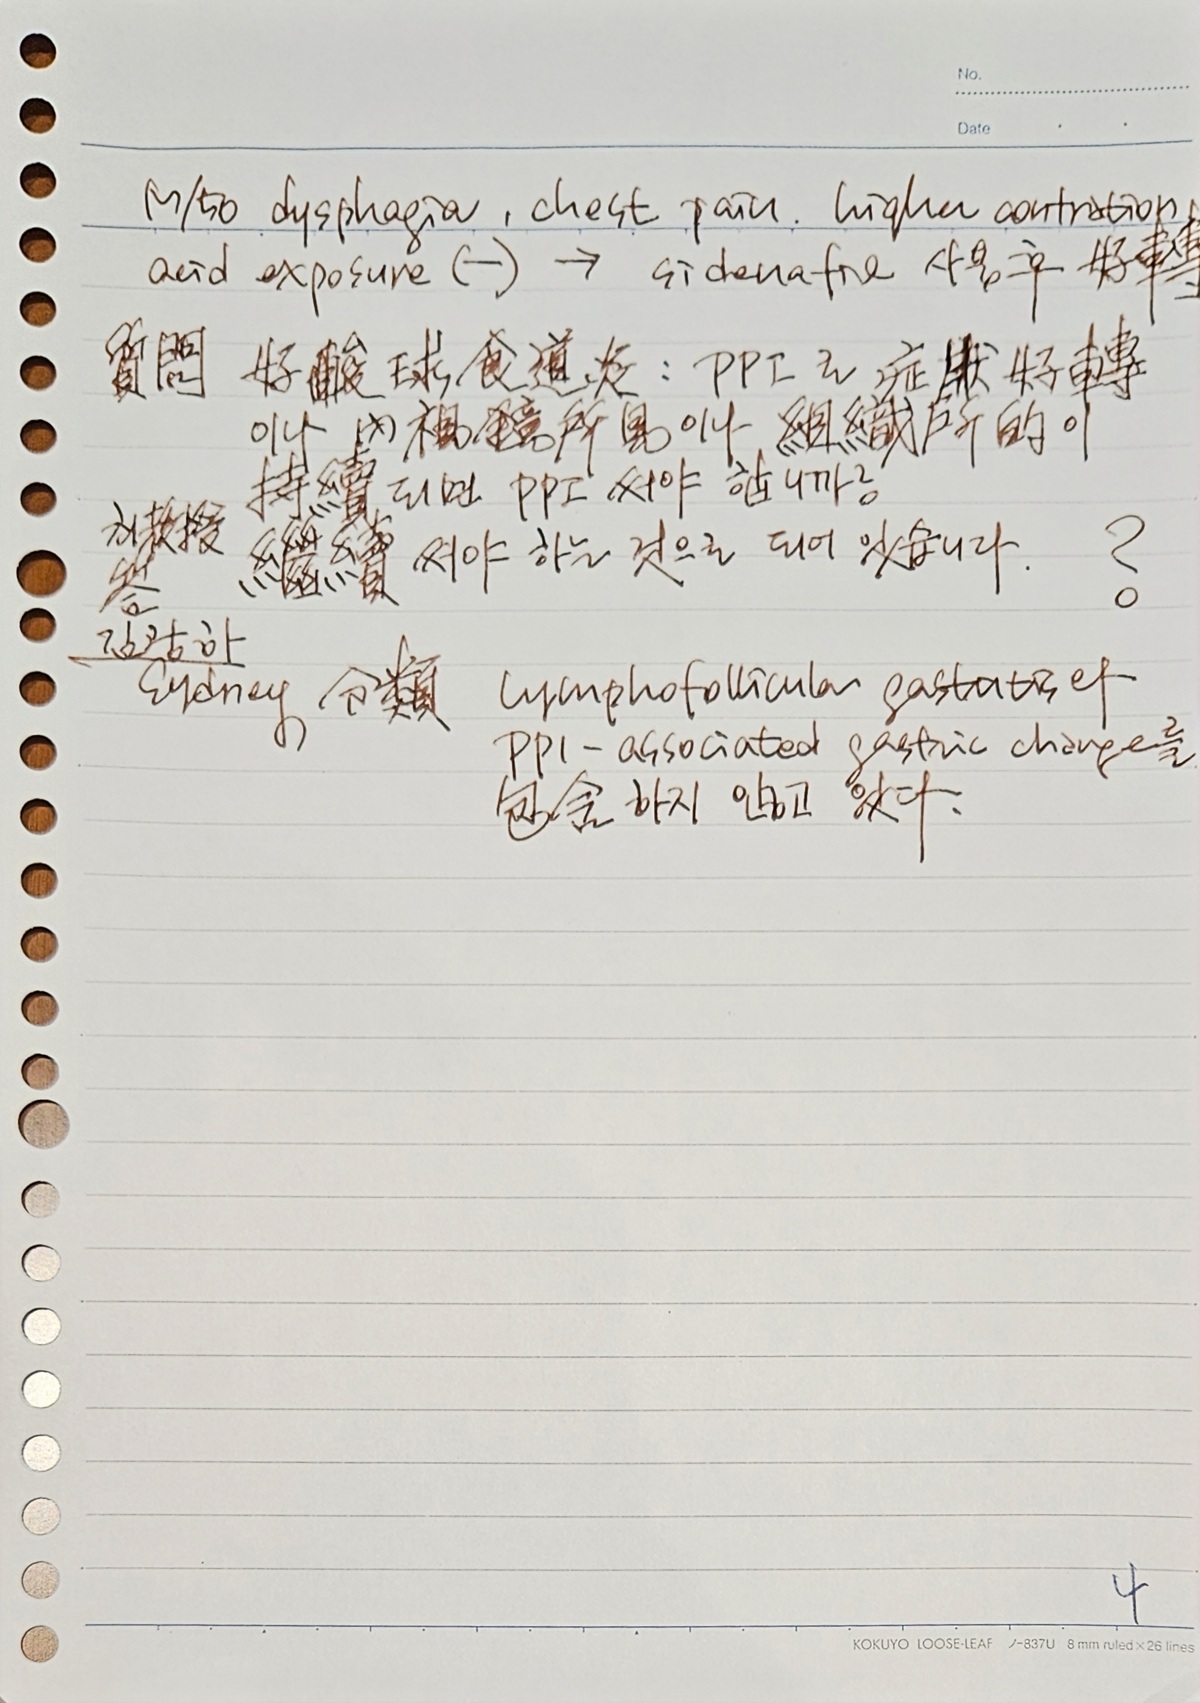 No.
Date
M/50 dysphagia, chest pain. higher contration,
acid exposure (-) → sidenafie 사용후 好轉
質問 好酸球食道炎: PPI로 症狀 好轉
이나 內視鏡所見이나 組織所的이
持續되면 PPI 써야 합니까?
教授
答 繼續 써야 하는 것으로 되어 있습니다. ?
김광하
Sydney 分類 lymphofollicular gastritis et
PPI-associated gastric change를
包含하지 안고 있다.
4
KOKUYO LOOSE-LEAF ノ-837U 8 mm ruled × 26 lines